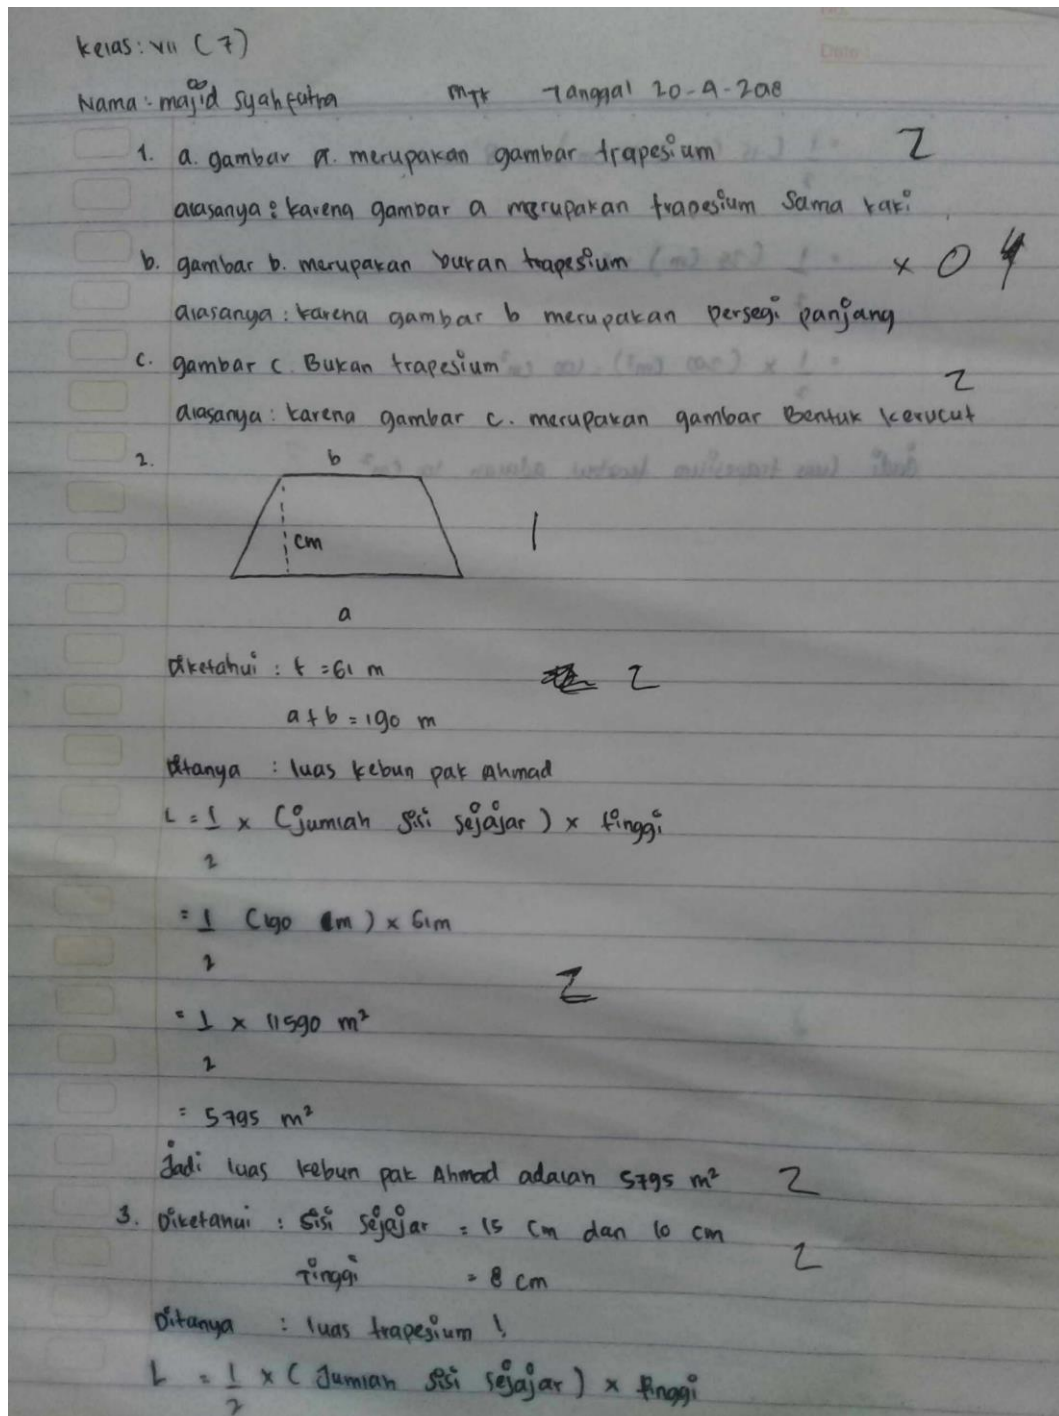 No.
Date:
Kelas: VII (7)
Nama: majid syahputra MTK Tanggal 20-4-2018
1. a. gambar a. merupakan gambar trapesium 2
alasanya: karena gambar a merupakan trapesium sama kaki
b. gambar b. merupakan bukan trapesium x 0 4
alasanya: karena gambar b merupakan persegi panjang
c. gambar c Bukan trapesium 2
alasanya: karena gambar c. merupakan gambar Bentuk kerucut
2. b
cm 1
a
Diketahui : t = 61 m 2
a + b = 190 m
ditanya : luas kebun pak Ahmad
L = 1/2 x (jumlah sisi sejajar) x tinggi
= 1/2 (190 m) x 61m
2
= 1/2 x 11590 m²
= 5795 m²
Jadi luas kebun pak Ahmad adalah 5795 m² 2
3. Diketahui : sisi sejajar = 15 cm dan 10 cm 2
Tinggi = 8 cm
Ditanya : luas trapesium !
L = 1/2 x (Jumlah sisi sejajar) x tinggi